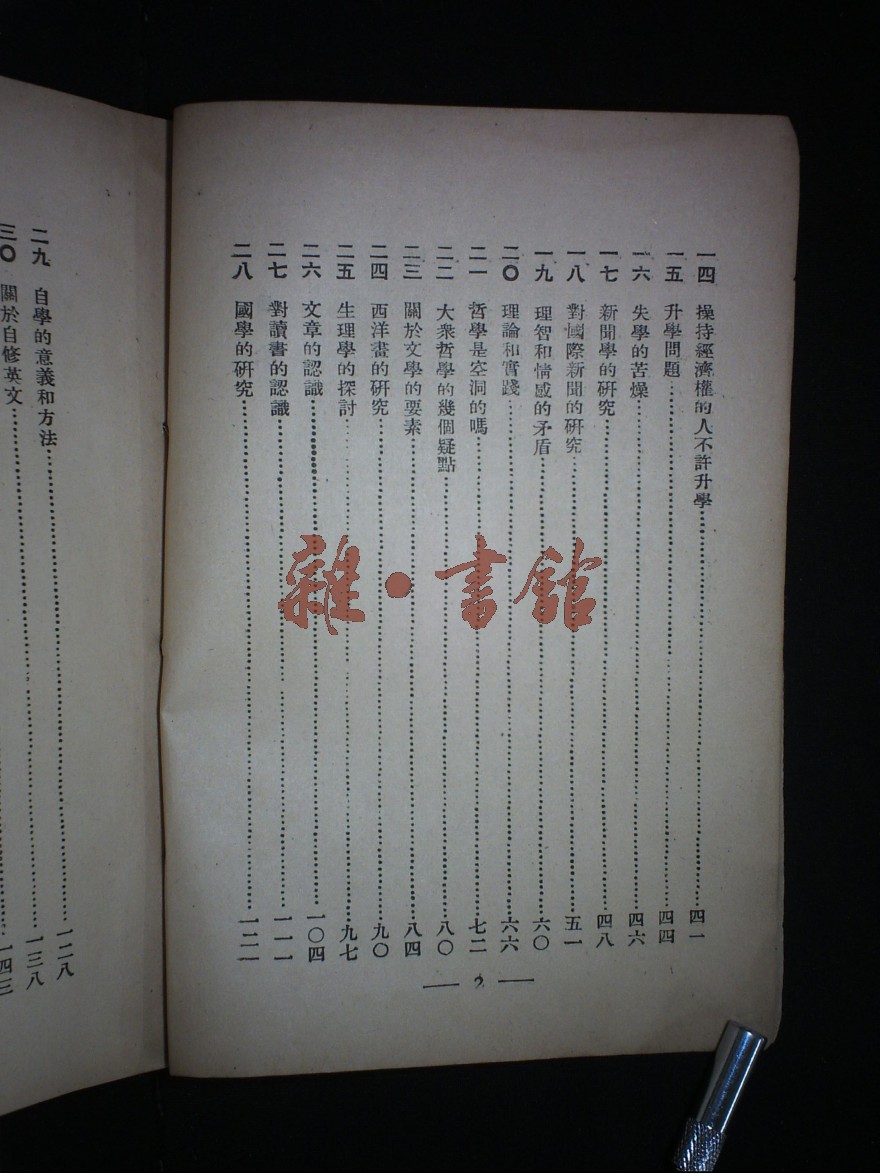 一四 操持經濟權的人不許升學……四一
一五 升學問題……四四
一六 失學的苦燥……四六
一七 新聞學的研究……四八
一八 對國際新聞的研究……五一
一九 理智和情感的矛盾……六〇
二〇 理論和實踐……六六
二一 哲學是空洞的嗎……七二
二二 大衆哲學的幾個疑點……八〇
二三 關於文學的要素……八四
二四 西洋畫的研究……九〇
二五 生理學的探討……九七
二六 文章的認識……一〇四
二七 對讀書的認識……一一一
二八 國學的研究……一二一
— 2 —
二九 自學的意義和方法……一二八
三〇 關於自修英文……一三八
一四三
雜·書館